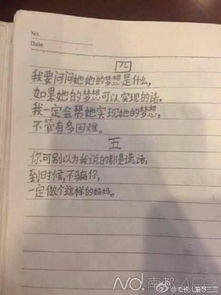 No.
Date.
四
我要问问她她的梦想是什么,
如果她的梦想可以实现的话,
我一定会帮她实现她的梦想,
不管有多困难。
五
你可别以为我说的都是谎话,
到时候,不骗你,
一定做个这样的妈妈。